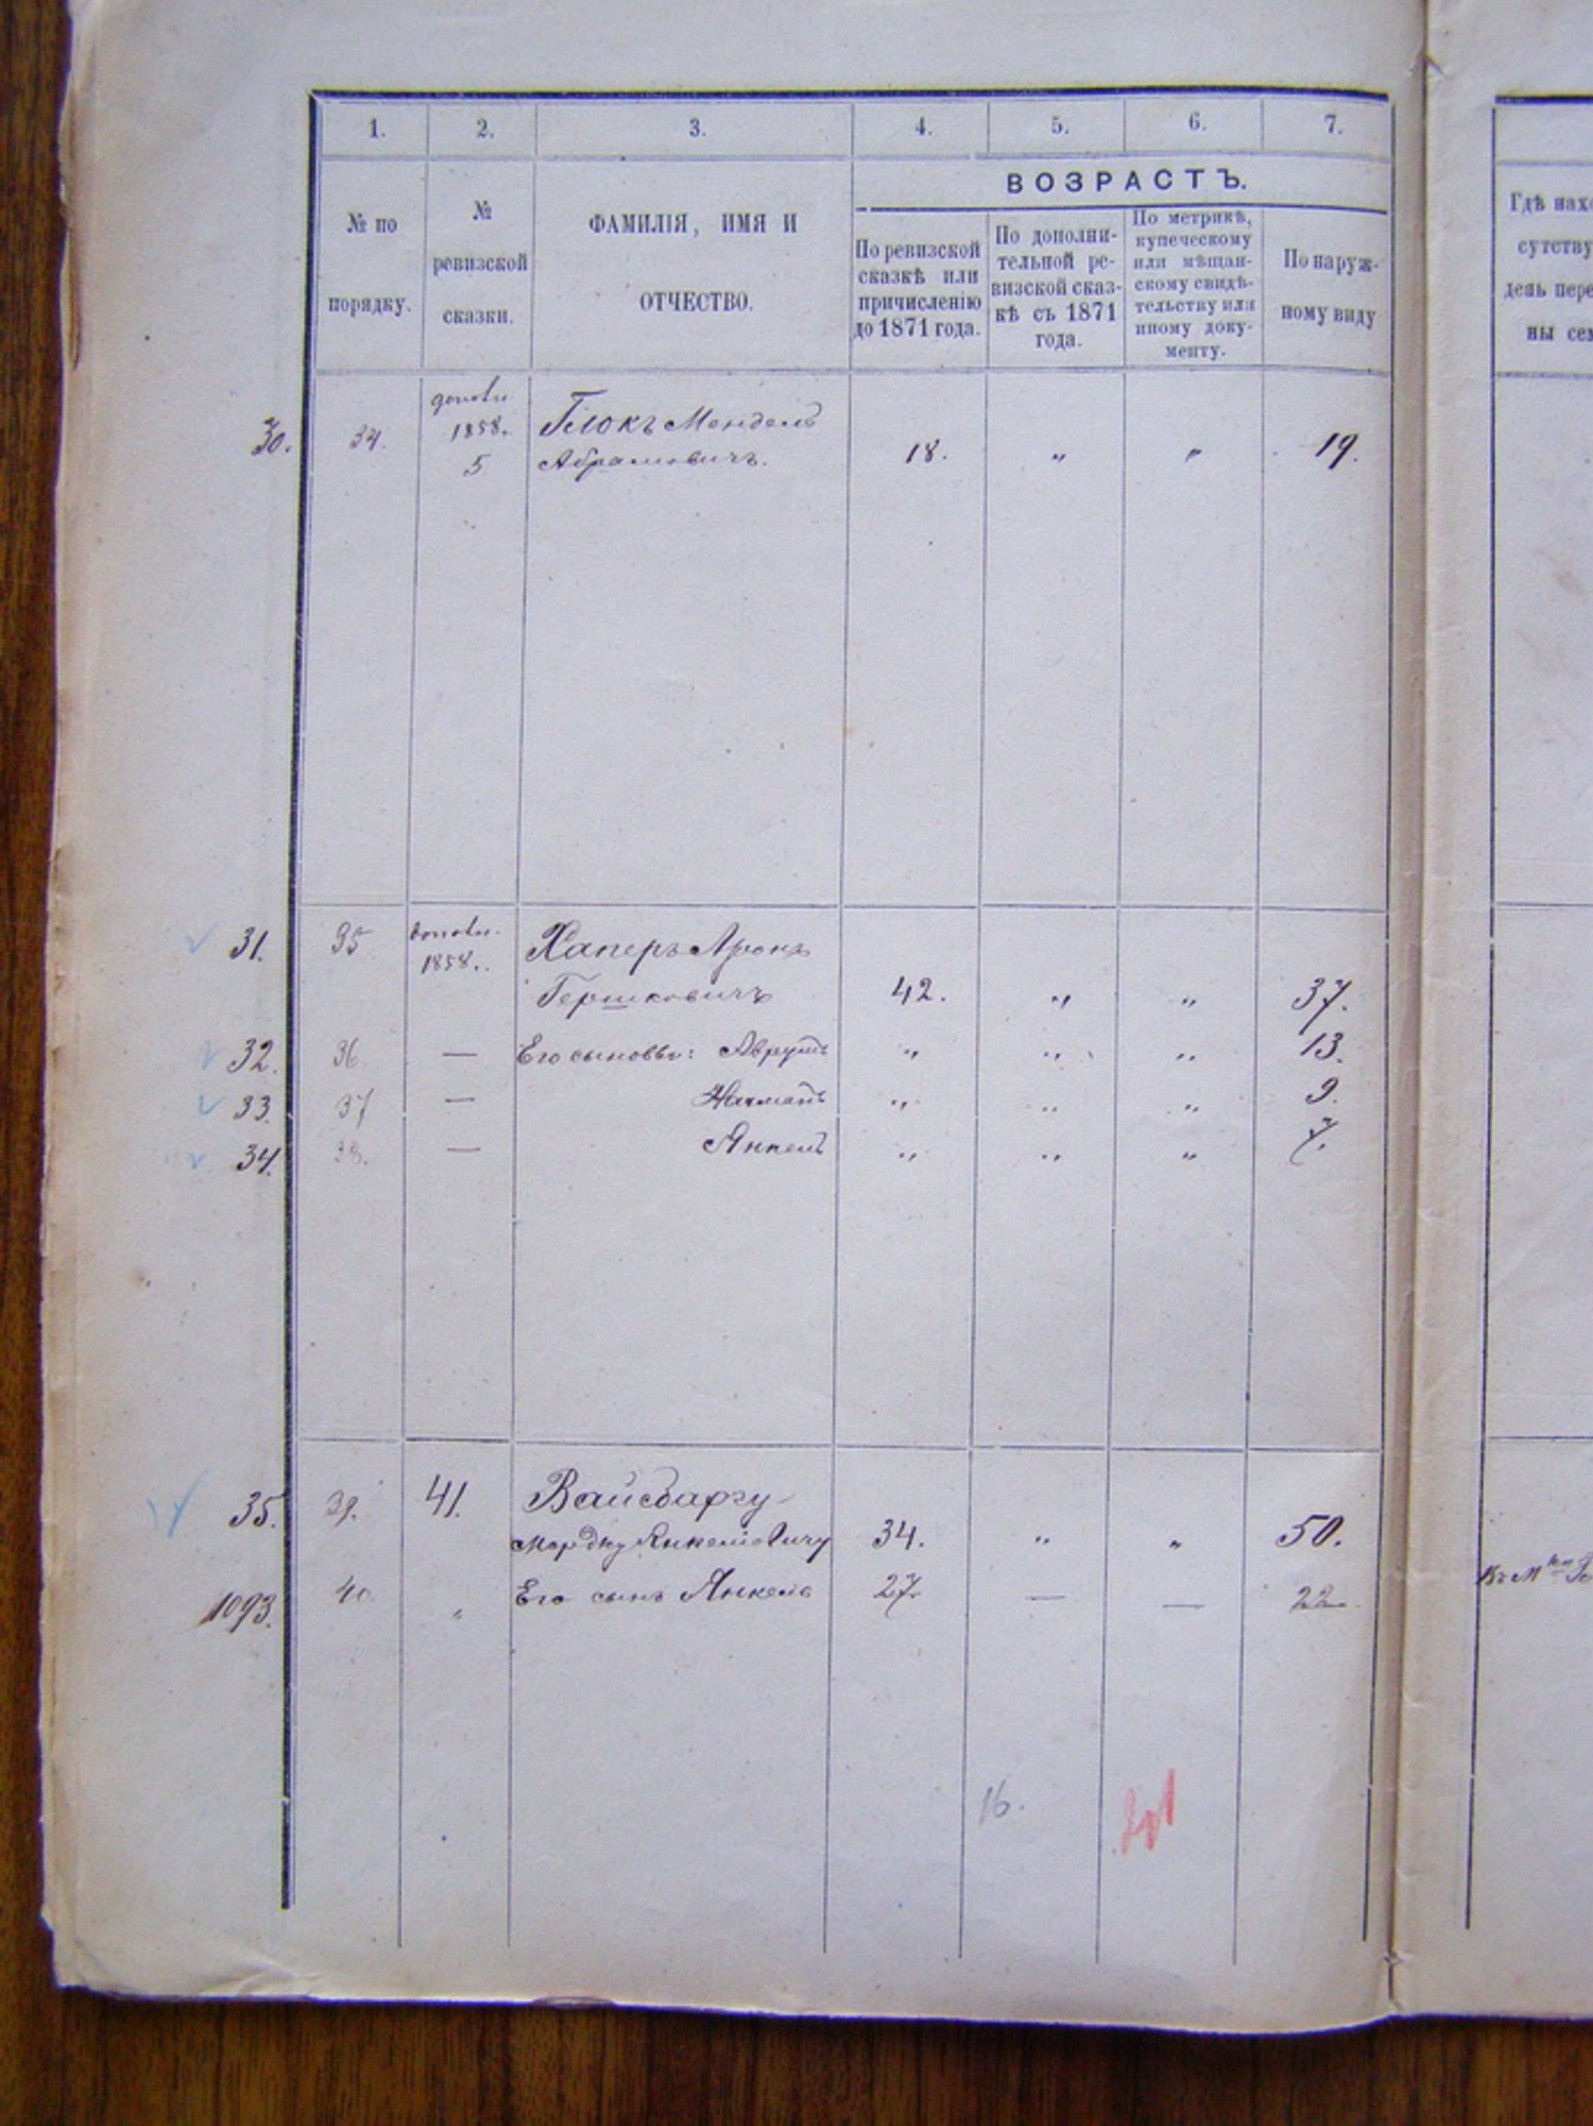 1. 2. 3. 4. 5. 6. 7.
№ по
порядку.
№
ревизской
сказки.
ФАМИЛІЯ, ИМЯ И
ОТЧЕСТВО.
ВОЗРАСТЪ.
По ревизской
сказкѣ или
причисленію
до 1871 года.
По дополни-
тельной ре-
визской сказ-
кѣ съ 1871
года.
По метрикѣ,
купеческому
или мѣщан-
скому свидѣ-
тельству или
иному доку-
менту.
По наруж-
ному виду
Гдѣ нахо
сутству
день пере
ны сем
1858.
30. 34. 5 Блокъ Мендель
Абрамовичъ. 18. „ „ 19.
31. 35 Хаперъ Аронъ
1858.
Гершковичъ 42. „ „ 37.
32. 36. — Его сыновья: Аврумъ „ „ „ 13.
33. 37 — Нахманъ „ „ „ 9.
34. 38. — Янкель „ „ „ 7.
35. 39. 41. Вайсбаргъ
Мордку Янкелевичу 34. „ „ 50.
1093. 40. „ Его сынъ Янкель 27. — — 22.
16.